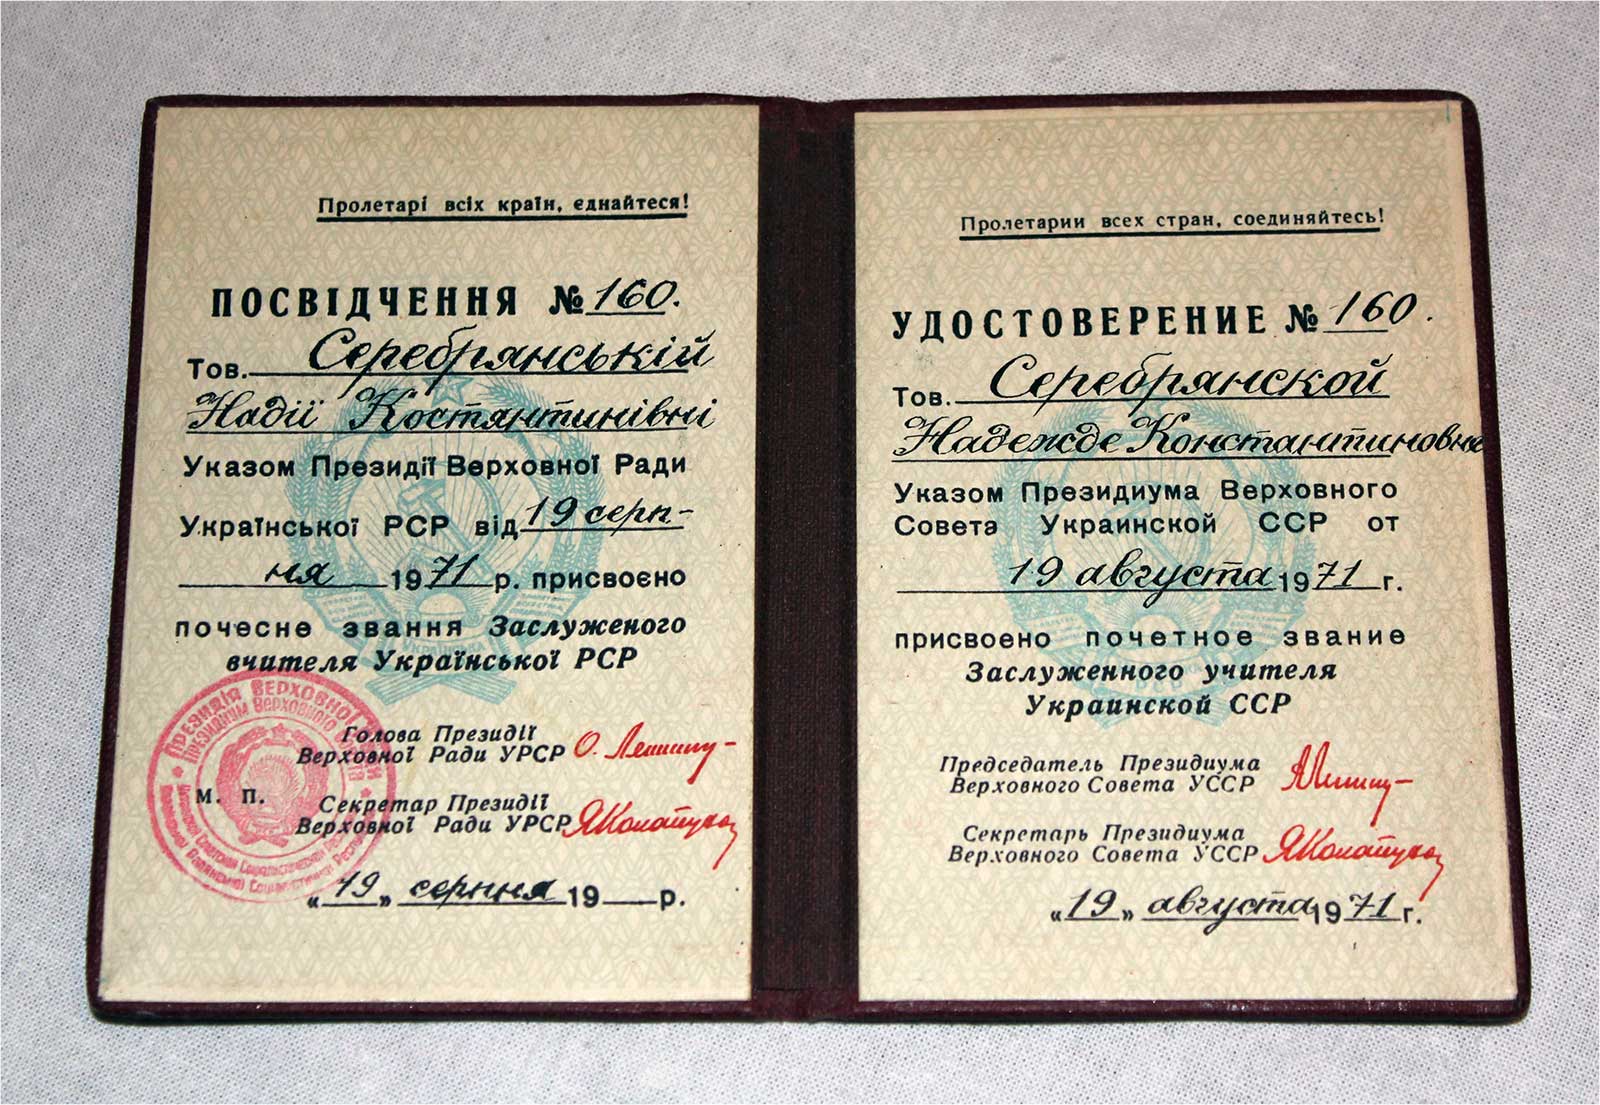 Пролетарі всіх країн, єднайтеся!
ПОСВІДЧЕННЯ № 160.
Тов. Серебрянській
Надії Костянтинівні
Указом Президії Верховної Ради
Української РСР від 19 серп-
ня 1971 р. присвоєно
почесне звання Заслуженого
вчителя Української РСР
Голова Президії
Верховної Ради УРСР
М. П.
Секретар Президії
Верховної Ради УРСР
«19» серпня 19 р.
Президія Верховної Ради
Президиум Верховного
Пролетарии всех стран, соединяйтесь!
УДОСТОВЕРЕНИЕ № 160.
Тов. Серебрянской
Надежде Константиновне
Указом Президиума Верховного
Совета Украинской ССР от
19 августа 1971 г.
присвоено почетное звание
Заслуженного учителя
Украинской ССР
Председатель Президиума
Верховного Совета УССР
Секретарь Президиума
Верховного Совета УССР
«19» августа 1971 г.